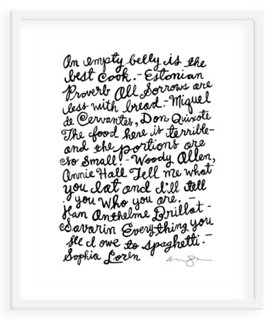 An empty belly is the
best cook.- Estonian
Proverb All Sorrows are
less with bread.- Miguel
de Cervantes, Don Quixote
The food here is terrible-
and the portions are
so small.- Woody Allen,
Annie Hall Tell me what
you eat and I'll tell
you who you are. -
Jean Anthelme Brillat-
Savarin Everything you
see I owe to spaghetti.-
Sophia Loren